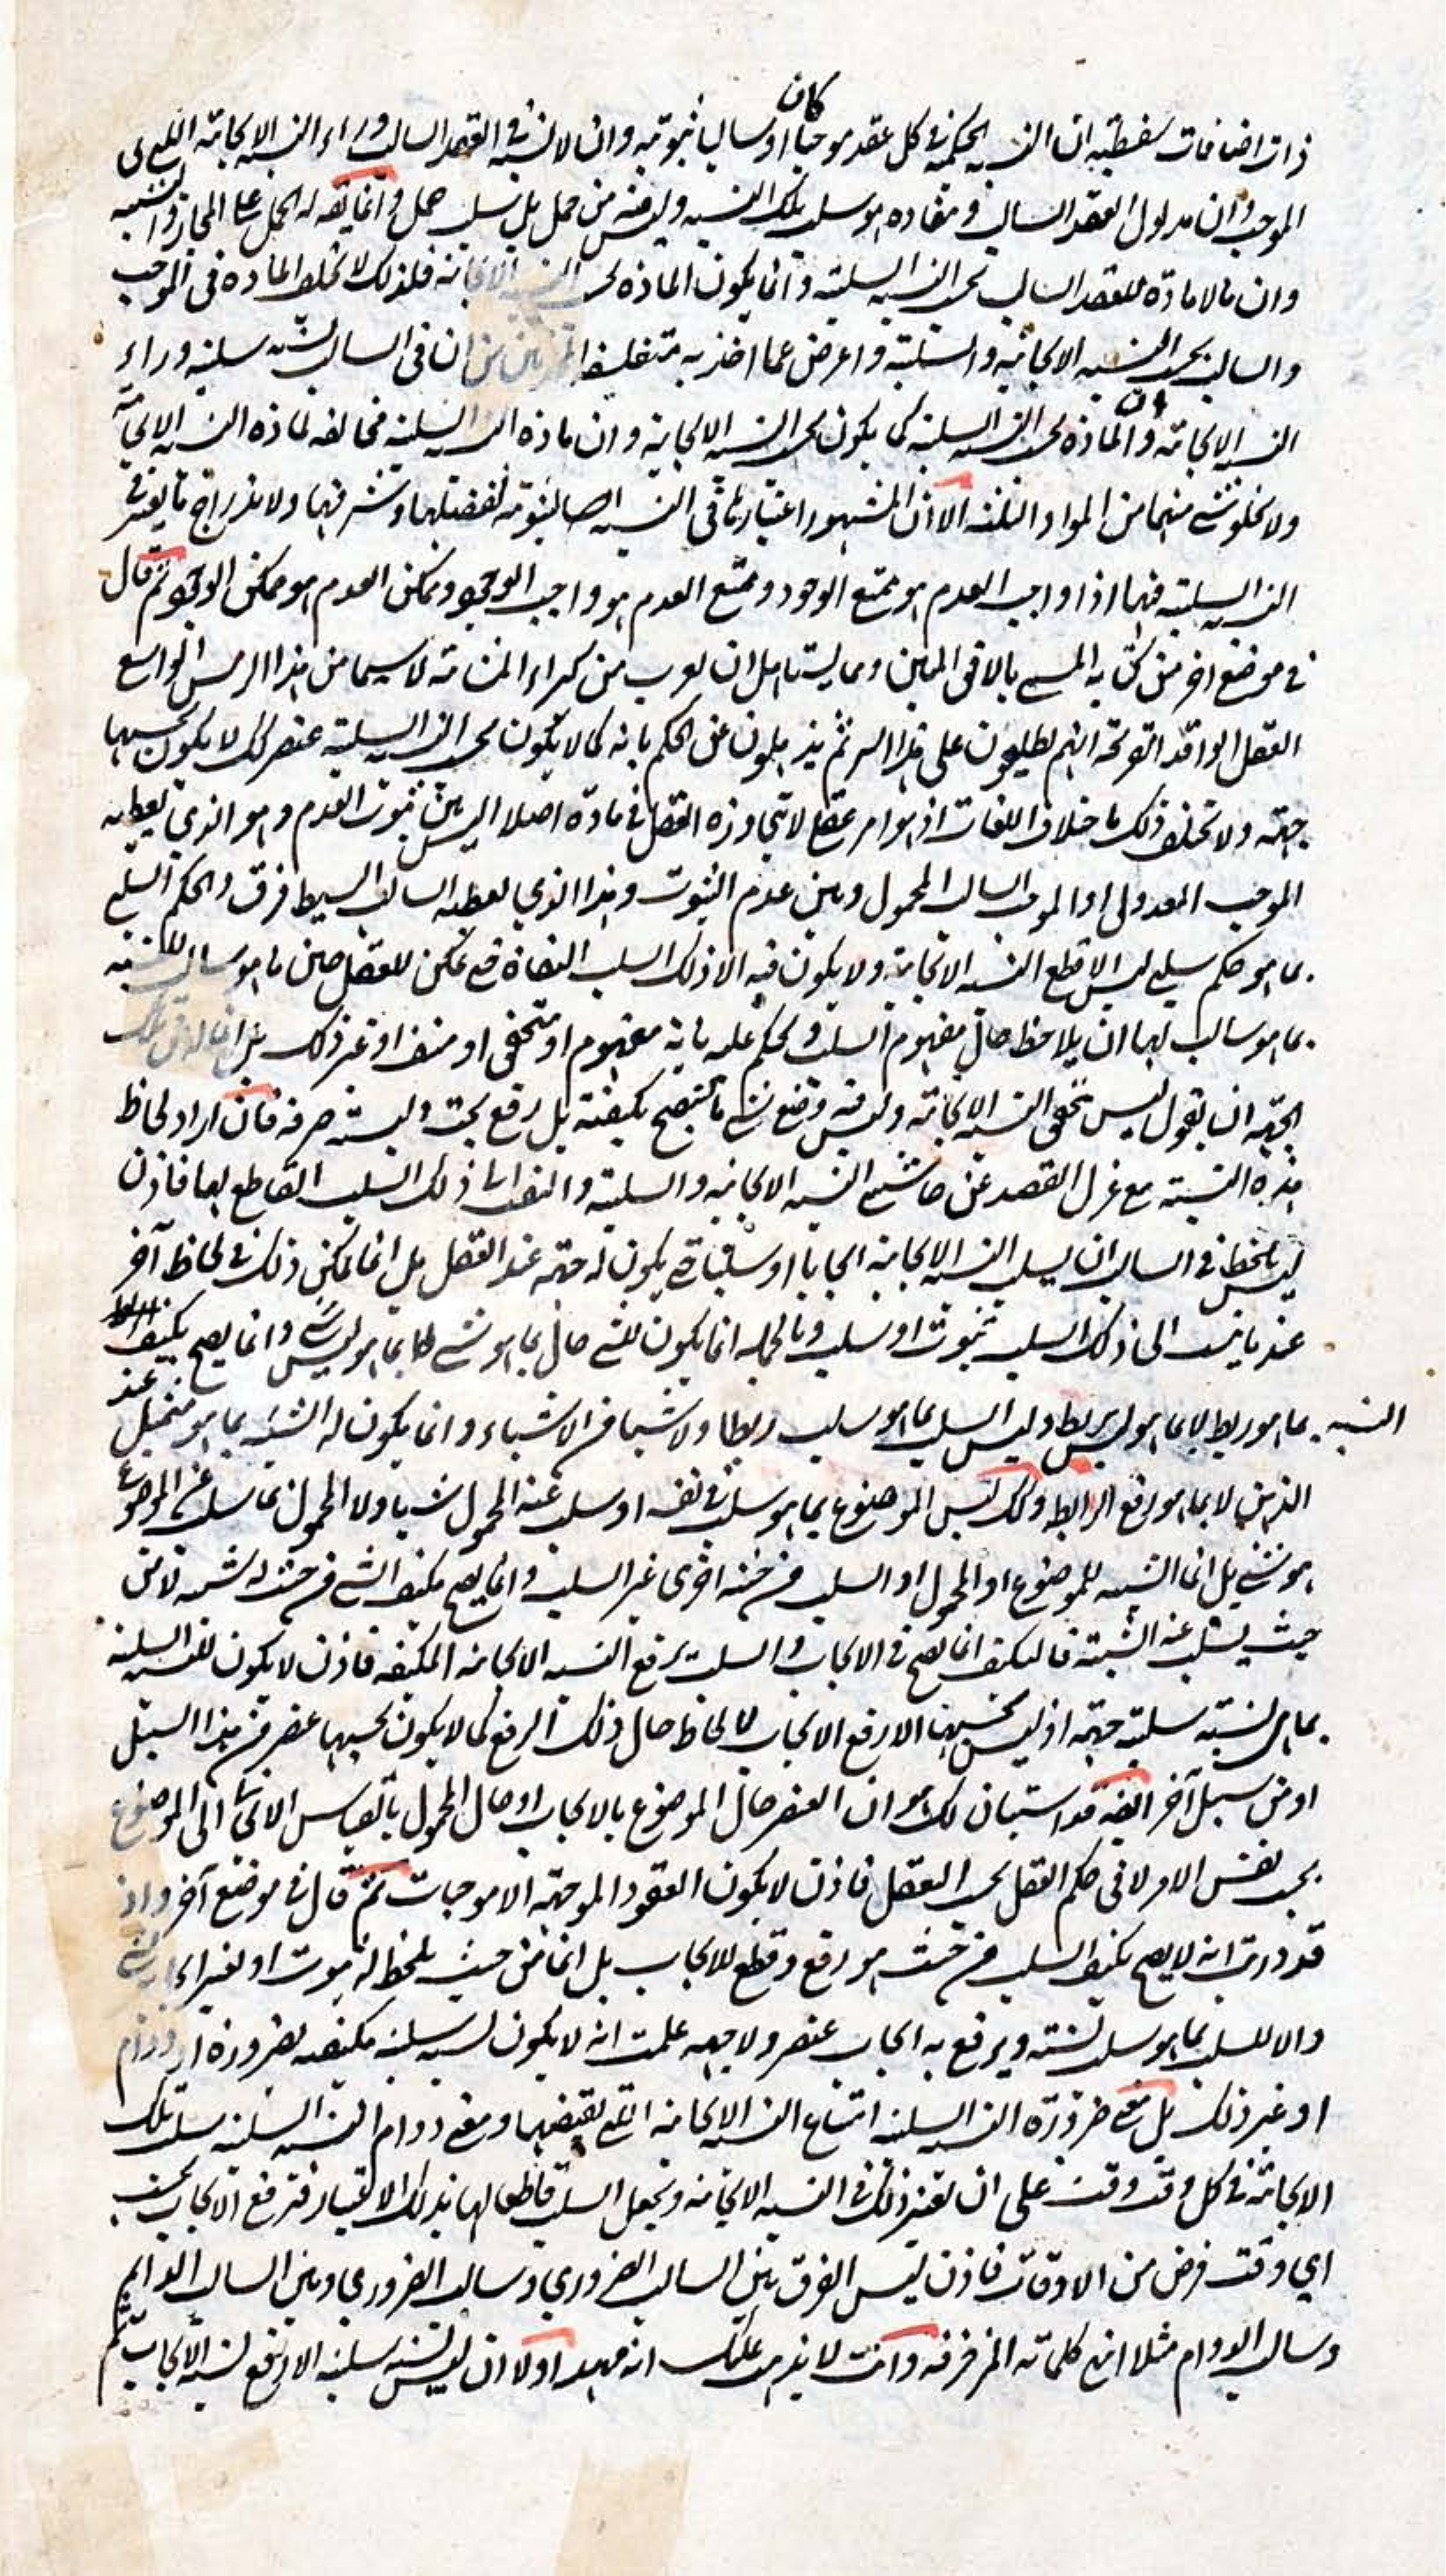 كان
ذات اضافات سفسطية ان النسبة الحكمية في كل عقد موجبا او سالبا ثبوتية وان لا نسبة في العقد السالب وراء النسبة الايجابية التي في
الموجب وان مدلول العقد السالب ومفاده هو سلب تلك النسبة وليس فيه حمل بل سلب حمل وانما يقال له الحمل على المجاز والتشبيه
وان لا مادة للعقد السالب بحسب النسبة السلبية وانما يكون المادة بحسب النسبة الايجابية فلذلك لا تختلف المادة في الموجب
والسالب بحسب النسبة الايجابية والسلبية واعرض عما اخذ به متفلسفوا ان في السالب نسبة سلبية وراء
النسبة الايجابية وان المادة بحسب النسبة السلبية كما يكون بحسب النسبة الايجابية وان مادة النسبة السلبية مخالفة لمادة النسبة الايجابية
ولا يخلو شيء منهما من المواد الثلثة الا ان المشهور اعتبارها في النسبة الثبوتية لفضلها وشرفها ولاندراج ما يعتبر في
النسبة السلبية فيها اذ واجب العدم هو ممتنع الوجود وممتنع العدم هو واجب الوجود وممكن العدم هو ممكن الوجود ثم قال
في موضع اخر من كتابه المسمى بالافق المبين ومما يستاهل ان تعجب من كبراء المشائية لا سيما من هذا الرئيس الواسع
العقل الواقد القريحة انهم يطلعون على هذا السر ثم يذهلون عن الحكم بانه كما لا يكون بحسب النسبة السلبية عنصر كذلك لا يكون بحسبها
جهة ولا تختلف ذلك باختلاف اللغات اذ هو امر عقلي لا يتجاوزه العقل في مادة اصلا اليس بين ثبوت العدم وهو الذي يعطيه
الموجب المعدولي او الموجب السالب المحمول وبين عدم الثبوت وهذا الذي يعطيه السالب البسيط فرق والحكم السلبي
بما هو حكم سلبي ليس الا قطع النسبة الايجابية ولا يكون فيه الا ذلك السلب فمتى يمكن للعقل حين ما هو سالب للنسبة
بما هو سالب لها ان يلاحظ حال مفهوم السلب ويحكم عليه بانه مفهوم او متحقق او منتف او غير ذلك بل انما له من تلك
الجهة ان يقول ليس تحقق النسبة الايجابية وليس فيه وضع شيء ما ليصح تكيفه بل رفع بحت وليسية صرفة فان اراد لحاظ
هذه النسبة مع عزل القصد عن حاشيتي النسبة الايجابية والسلبية والتفات الى ذلك السلب القاطع لها فاذن
ليس بلحظ في السالب ان ليست النسبة الايجابية ايجابا او سلبا حتى يكون له جهة عند العقل بل انما يمكن ذلك في لحاظ آخر
عندما ينسب الى ذلك السلب ثبوت او سلب وبالجملة انما يكون للشيء حال بما هو شيء لا بما هو ليس شيء وانما يصح تكيف عند
النسبة بما هو ربط لا بما هو ليس بربط وليس السلب بما هو سلب ربطا ولا شيئا من الاشياء وانما يكون له الشيئية بما هو متمثل
الذهن لا بما هو رفع الرابطة وكذلك ليس الموضوع بما هو سلب في نفسه او سلب عنه المحمول شيئا ولا المحمول بما سلب عن الموضوع
هو شيء بل انما الشيئية للموضوع او المحمول او السلب من حيثية اخرى غير السلب وانما يصح تكيف الشيء من حيث له شيئية لا من
حيث يسلب عنه الشيئية فالتكيف انما يصح في الايجاب والسلب يرفع النسبة الايجابية المكيفة فاذن لا يكون للنسبة السلبية
بما هي نسبة سلبية جهة اذ ليس بحسبها الا رفع الايجاب لا لحاظ حال ذلك الرفع كما لا يكون بحسبها عنصر من هذا السبيل
او من سبيل آخر ايضا قد استبان لك هو ان العنصر حال الموضوع بالايجاب او حال المحمول بالقياس الايجابي الى الموضوع
بحسب نفس الامر لا في حكم العقل بحسب العقل فاذن لا يكون العقود الموجهة الا موجبات ثم قال في موضع آخر واذ
قد دريت انه لا يصح تكيف السلب من حيث هو رفع وقطع للايجاب بل انما من حيث يلحظ له ثبوت او يعتبر
والا للسلب بما هو سلب نسبة ويرفع به ايجاب عنصر ولا جهة علمت انه لا يكون نسبة سلبية مكيفة بضرورة او دوام
او غير ذلك بل معنى ضرورة النسبة السلبية امتناع النسبة الايجابية التي نقيضها ومعنى دوام النسبة السلبية سلب تلك
الايجابية في كل وقت وقت على ان تعتبر ذلك في النسبة الايجابية وتجعل السلب قاطعا لها بذلك الاعتبار فترفع الايجاب بحسب
اي وقت فرض من الاوقات فاذن ليس الفرق بين السالب الضروري وسالب الضروري وبين السالب الدايم
وسالب الدوام مثلا انتهى كلماته المزخرفة وانت لا يذهب عليك انه مهد اولا ان ليس نسبة سلبية الا رفع نسبة الايجاب ثم